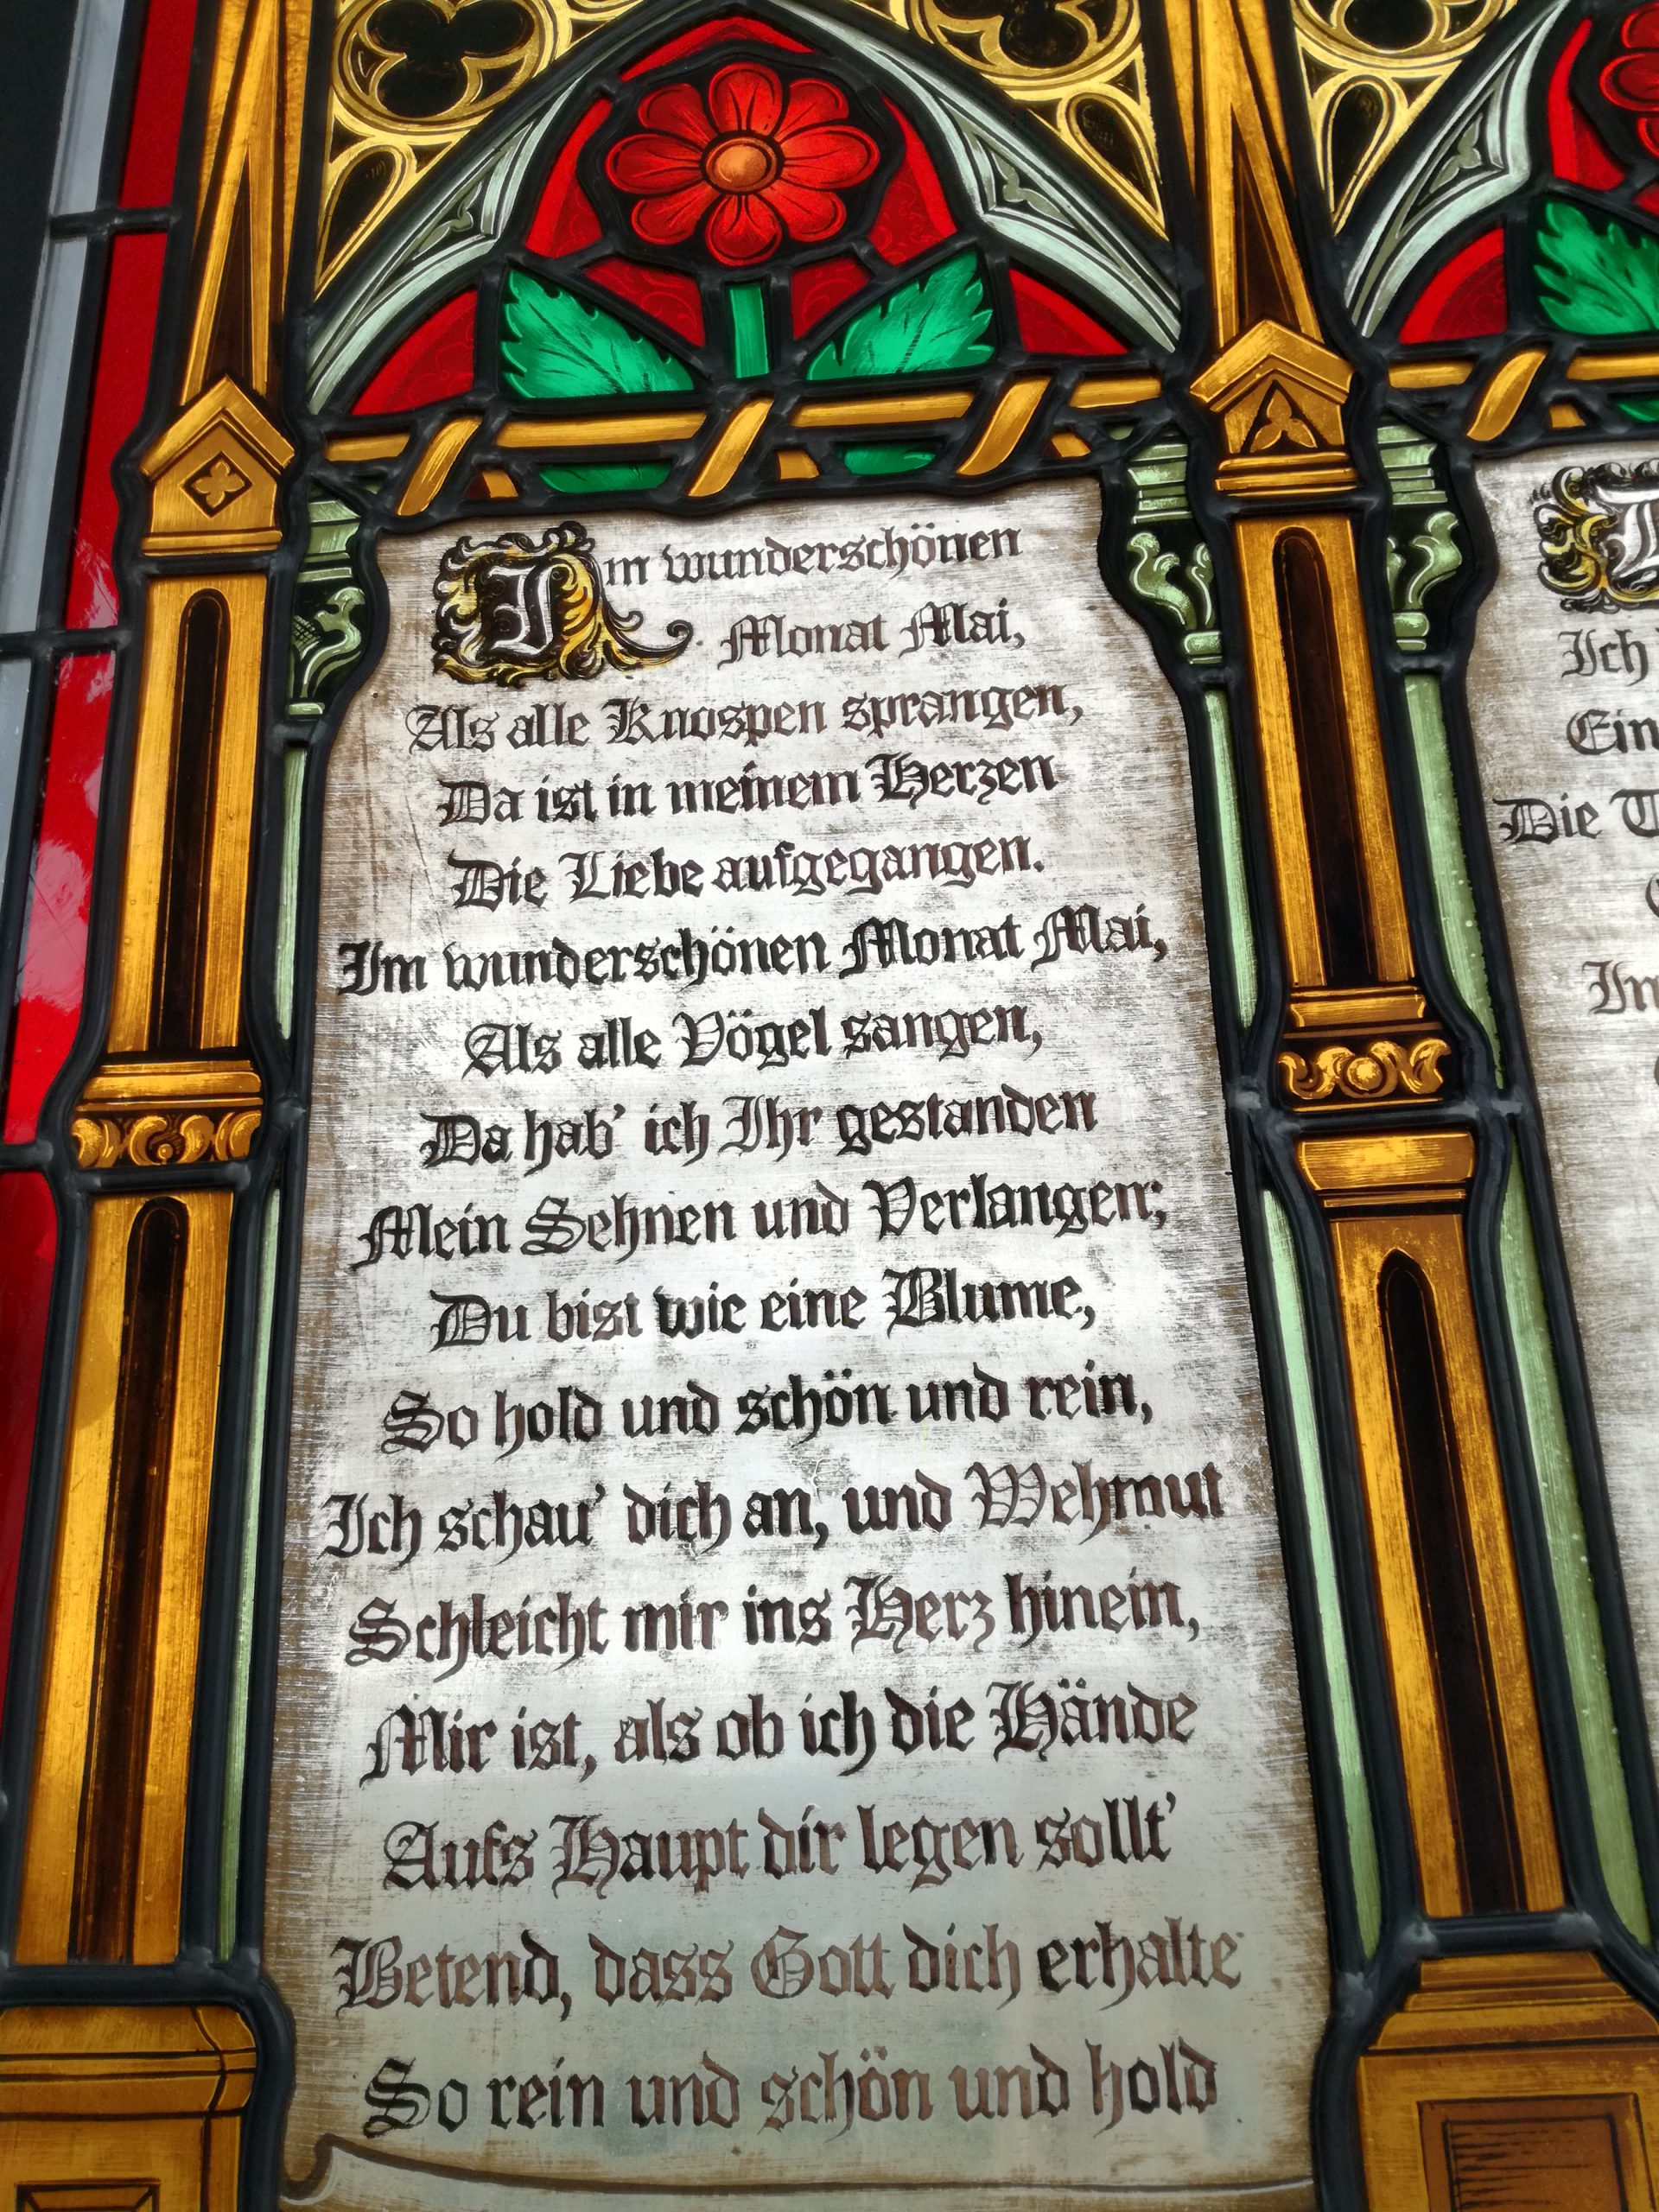 Im wunderschönen
Monat Mai,
Als alle Knospen sprangen,
Da ist in meinem Herzen
Die Liebe aufgegangen.
Im wunderschönen Monat Mai,
Als alle Vögel sangen,
Da hab' ich Ihr gestanden
Mein Sehnen und Verlangen;
Du bist wie eine Blume,
So hold und schön und rein,
Ich schau' dich an, und Wehmut
Schleicht mir ins Herz hinein,
Mir ist, als ob ich die Hände
Aufs Haupt dir legen sollt'
Betend, dass Gott dich erhalte
So rein und schön und hold
Ich
Ein
Die